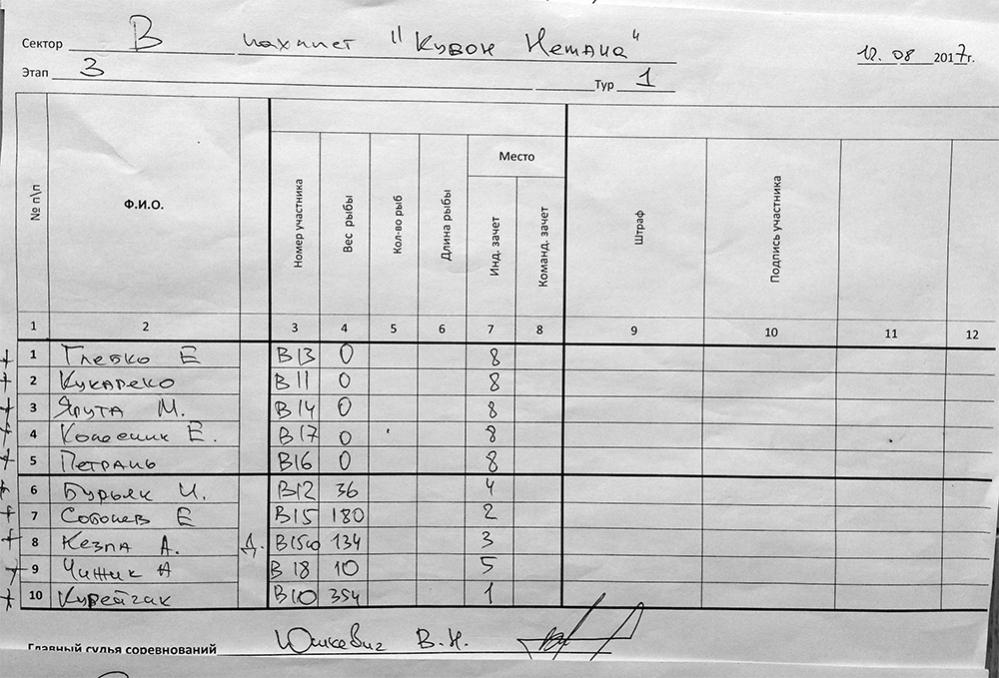 Сектор В пахлпет "Кубок Немана" 12.08 2017г.
Этап 3 Тур 1
№ п\п Ф.И.О. Номер участника Вес рыбы Кол-во рыб Длина рыбы Место Инд. зачет Команд. зачет Штраф Подпись участника
1 2 3 4 5 6 7 8 9 10 11 12
1 Глебко Е В13 0 8
2 Кукареко В11 0 8
3 Ярута М. В14 0 8
4 Колесник Е. В17 0 8
5 Петрань В16 0 8
6 Бурьяк И. В12 36 4
7 Соболев Е В15 180 2
8 Кезла А. Д. 134 3
9 Чижик А В18 10 5
10 Курейчак В10 354 1
Главный судья соревнований Юшкевич В.Н.